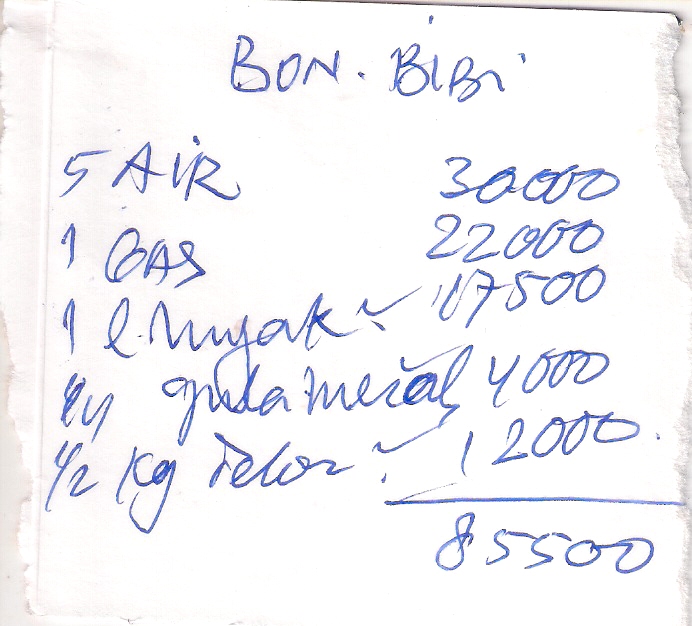 BON. BiBi
5 AiR 30000
1 GAS 22000
1 l. Minyak 17500
1/4 gula merah 4000
1/2 kg telor 12000
85500